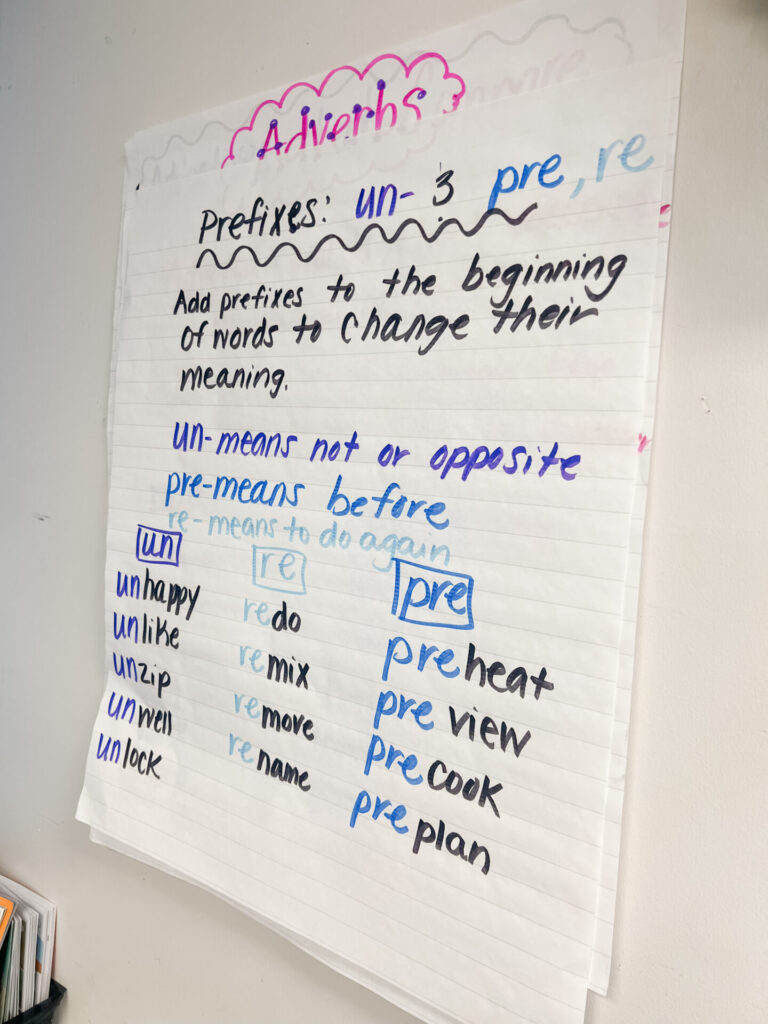 Adverbs
Prefixes: un- 3 pre, re
Add prefixes to the beginning
of words to change their
meaning.
un-means not or opposite
pre-means before
re-means to do again
un
unhappy
unlike
unzip
unwell
unlock
re
redo
remix
remove
rename
pre
preheat
preview
precook
preplan